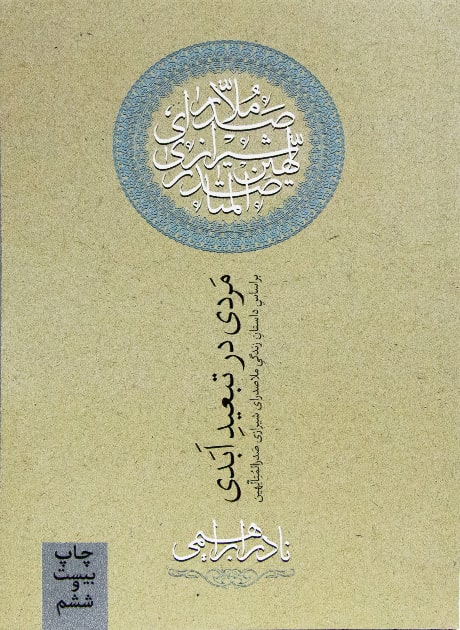 ملاّصدرای
شیرازی
صدرالمتألّهین
مَردی در تبعیدِ اَبَدی
براساسِ داستانِ زندگیِ ملاصدرای شیرازی صدرالمُتألّهین
نادر ابراهیمی
چاپ
بیست
و
ششم